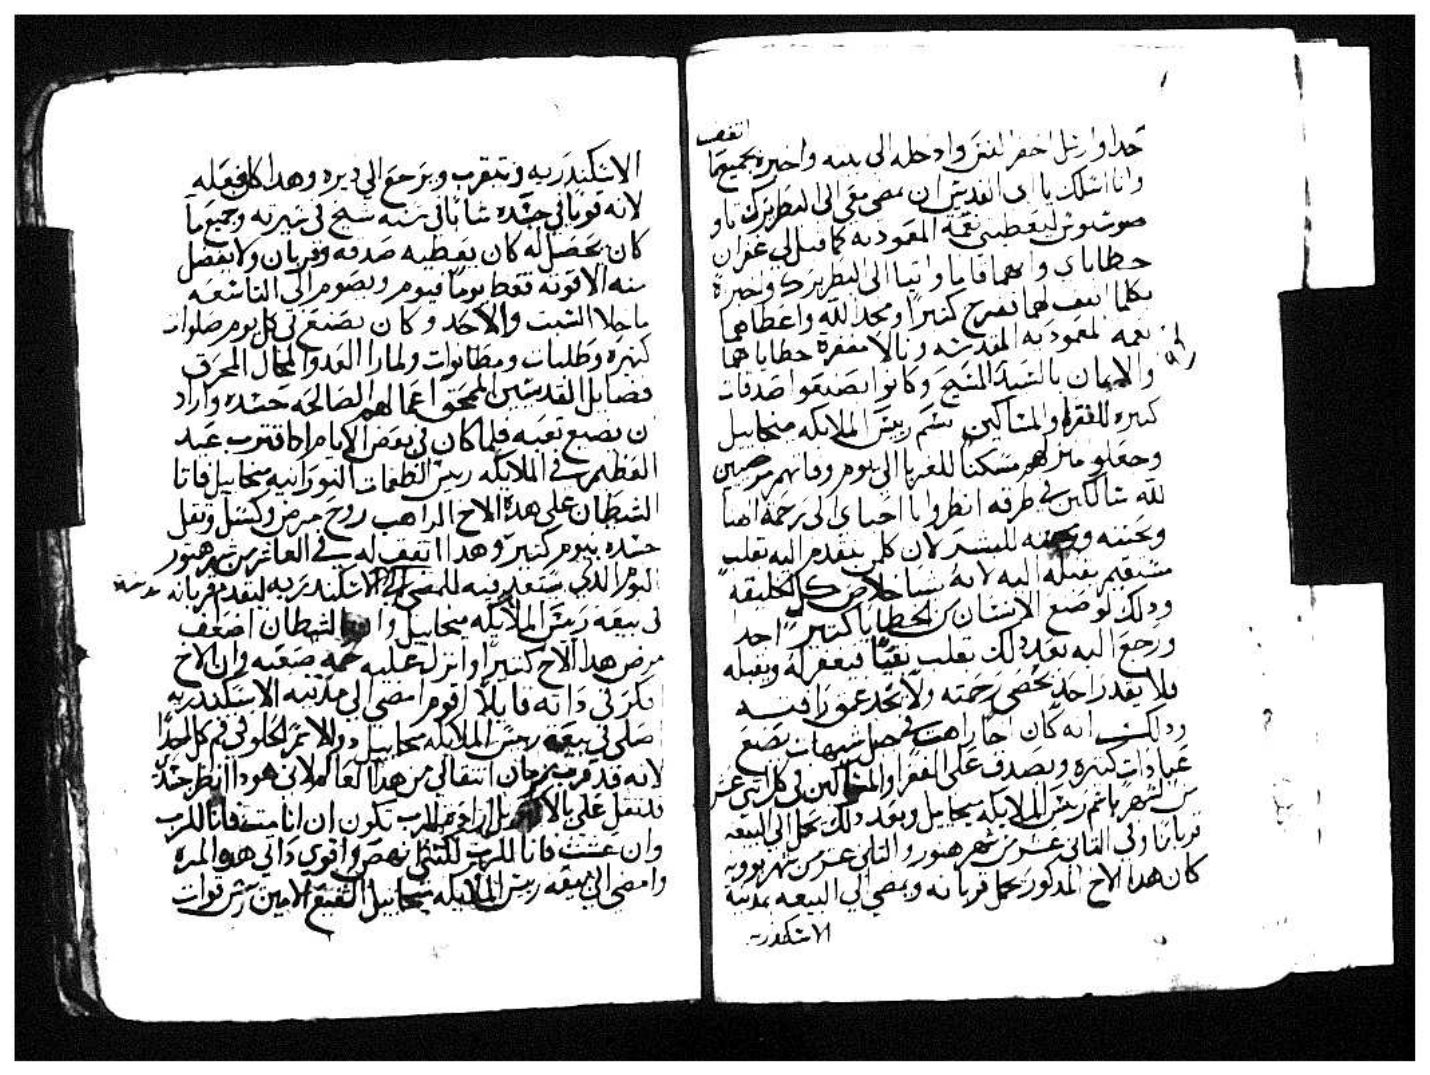 جدا وارسل احضر لنعى وادخله الى بيته واخبره بجميع ما اتفق
وانا اسلك يا ابى القديس ان تمضى معى الى البطريرك تاو
ليعطينى نعمة المعموديه كما قيل لى غفران
خطاياى وانهما قاما واتيا الى البطريرك واخبره
بكلما اتفق لهما ففرح كثيرا ومجد الله واعطاهما
نعمه المعموديه المقدسه ونالا مغفرة خطاياهما
والايمان بالسيد المسيح وكانوا يصنعوا صدقات
كثيره للفقرا والمساكين بسم ريس الملايكه ميخاييل
وجعلو منزلهم مسكنا للغربا الى يوم وفاتهم مرضيين
لله سالكين فى طرقه انظروا يا احباى الى رحمة الهنا
وتحننه ومحبته للبشر لان كل من يتقدم اليه بقلب
مستقيم يقبله اليه لانه يشا خلاص كل الخليقه
وذلك لو صنع الانسان من الخطايا كثير جدا
ورجع اليه بعد ذلك بقلب نقيا فيغفر له ويقبله
فلا يقدر احد يحصى رحمته ولا يحد عمق رافته
وذلك انه كان اخا راهب فى جبل شيهات يصنع
عبادات كثيره ويصدق على الفقرا والمساكين فى كل اثنى عشر
من الشهر باسم ريس الملايكه ميخاييل وبعد ذلك يحمل الى البيعه
قربانا وفى الثانى عشر من شهر هتور والثانى عشر من شهر بوونه
كان هذا الاخ المذكور يحمل قربانه ويمضى الى البيعه بمدينة
الاسكندريه
الاسكندريه ويتقرب ويرجع الى ديره وهذا كان فعله
لانه قويا فى جسده شابا فى سنه شيخ فى سيرته وجميع ما
كان يحصل له كان يعطيه صدقه وقربان ولا يفضل
منه الا قوته فقط يوما فيوم ويصوم الى التاسعه
ما خلا السبت والاحد وكان يصنع فى كل يوم صلوات
كثيره وطلبات ومطانوات ولما راا العدو المحال المحرق
فضايل القديسين الممحق اعمالهم الصالحه حسده واراد
ان يضيع تعبه فلما كان فى بعض الايام اذ اقترب عيد
العظيم فى الملايكه ريس الطغمات النورانيه ميخاييل فاتا
الشيطان على هذا الاخ الراهب روح مرض وكسل وثقل
جسده بيوم كثير وهذا اتفق له فى العاشر من شهر هتور
اليوم الذى يستعد فيه للمضى الى الاسكندريه ليقدم قربانه
فى بيعة ريس الملايكه ميخاييل وان الشيطان اضعف
مرض هذا الاخ كثيرا وانزل عليه حمه صعبه وان الاخ
فكر فى ذاته قايلا اقوم امضى الى مدينه الاسكندريه
اصلى فى بيعة ريس الملايكه ميخاييل والاسم الحلو فى فم كل احد
لانه قد قرب زمان انتقالى من هذا العالم لانى هوذا انظر جسدى
قد ثقل على بالاكثر بل ارادة الرب تكون ان انا مت فانا للرب
وان عشت فانا للرب لكننى انهض واقوى ذاتى هذه المره
وامضى الى بيعة ريس الملايكه ميخاييل الشفيع الامين ريس قوات